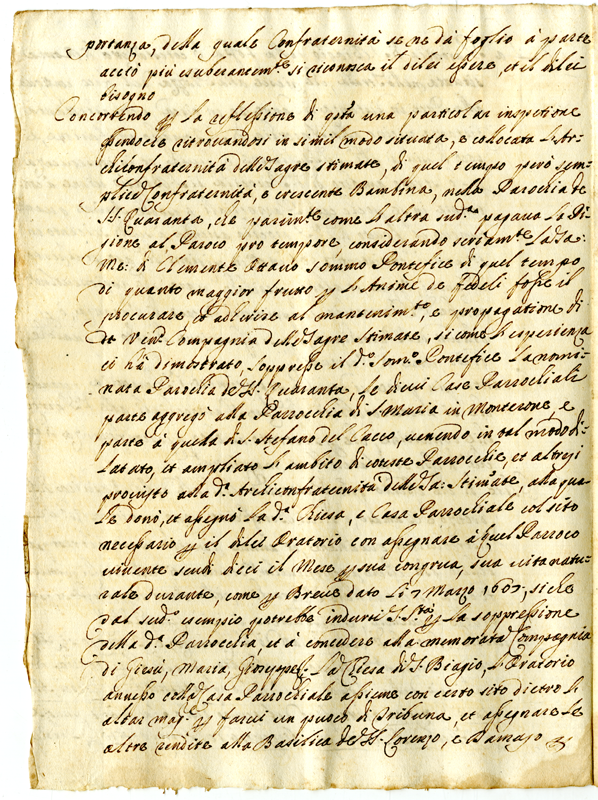 portanza, della quale Confraternità se ne dà foglio à parte
acciò più esuberantem.te si riconosca il dilei essere, et il dilei
bisogno
Concorrendo p la reflessione di q.sta una particolar inspetione
essendoche ritrovandosi in simil modo situata, e collocata l'Ar-
chiconfraternità delle Sagre stimate, di quel tempo però sem-
plice Confraternità, e crescente Bambina, nella Parochia de
SS. Quaranta, che parim.te come l'altra sud.a pagava la Pi-
gione al Paroco pro tempore, considerando seriam.te la Sa:
Me: di Clemente Ottavo sommo Pontefice di quel tempo
di quanto maggior frutto p l'Anime de fedeli fosse il
procurare, et adherire al mantenim.to, e propagatione di
Ven. Compagnia delle Sagre Stimate, si come l'esperienza
ci hà dimostrato, soppresse il d.o Som.o Pontefice la nomi-
nata Parochia de SS. Quaranta, le dieci Case Parrochiali
parte aggregò alla Parrochia di S. Maria in Monterone e
parte à quella di S. Stefano del Cacco, venendo in tal modo di-
latato, et ampliato l'ambito di coteste Parrochie, et altresi
provisto alla d.a Archiconfraternita delle Sa: Stimate, alla qua-
le donò, et assegnò la d.a Chiesa, e Casa Parrochiale col sito
necessario p il dilei Oratorio con assegnare à quel Parroco
vivente scudi dieci il Mese p sua congrua, sua vita natu-
rale durante, come p Breve dato li 7 Marzo 1607, siche
dal sud.o esempio potrebbe indursi S. S.tà p la soppressione
della d.a Parrochia, et à concedere alla memorata Compagnia
di Giesù, Maria, Gioseppe la Chiesa di S. Biagio, l'Oratorio
annesso colla Casa Parrochiale assieme con certo sito dietro l'
altar mag.e p farvi un puoco di Tribuna, et assegnare le
altre rendite alla Basilica de SS. Lorenzo, e Damaso